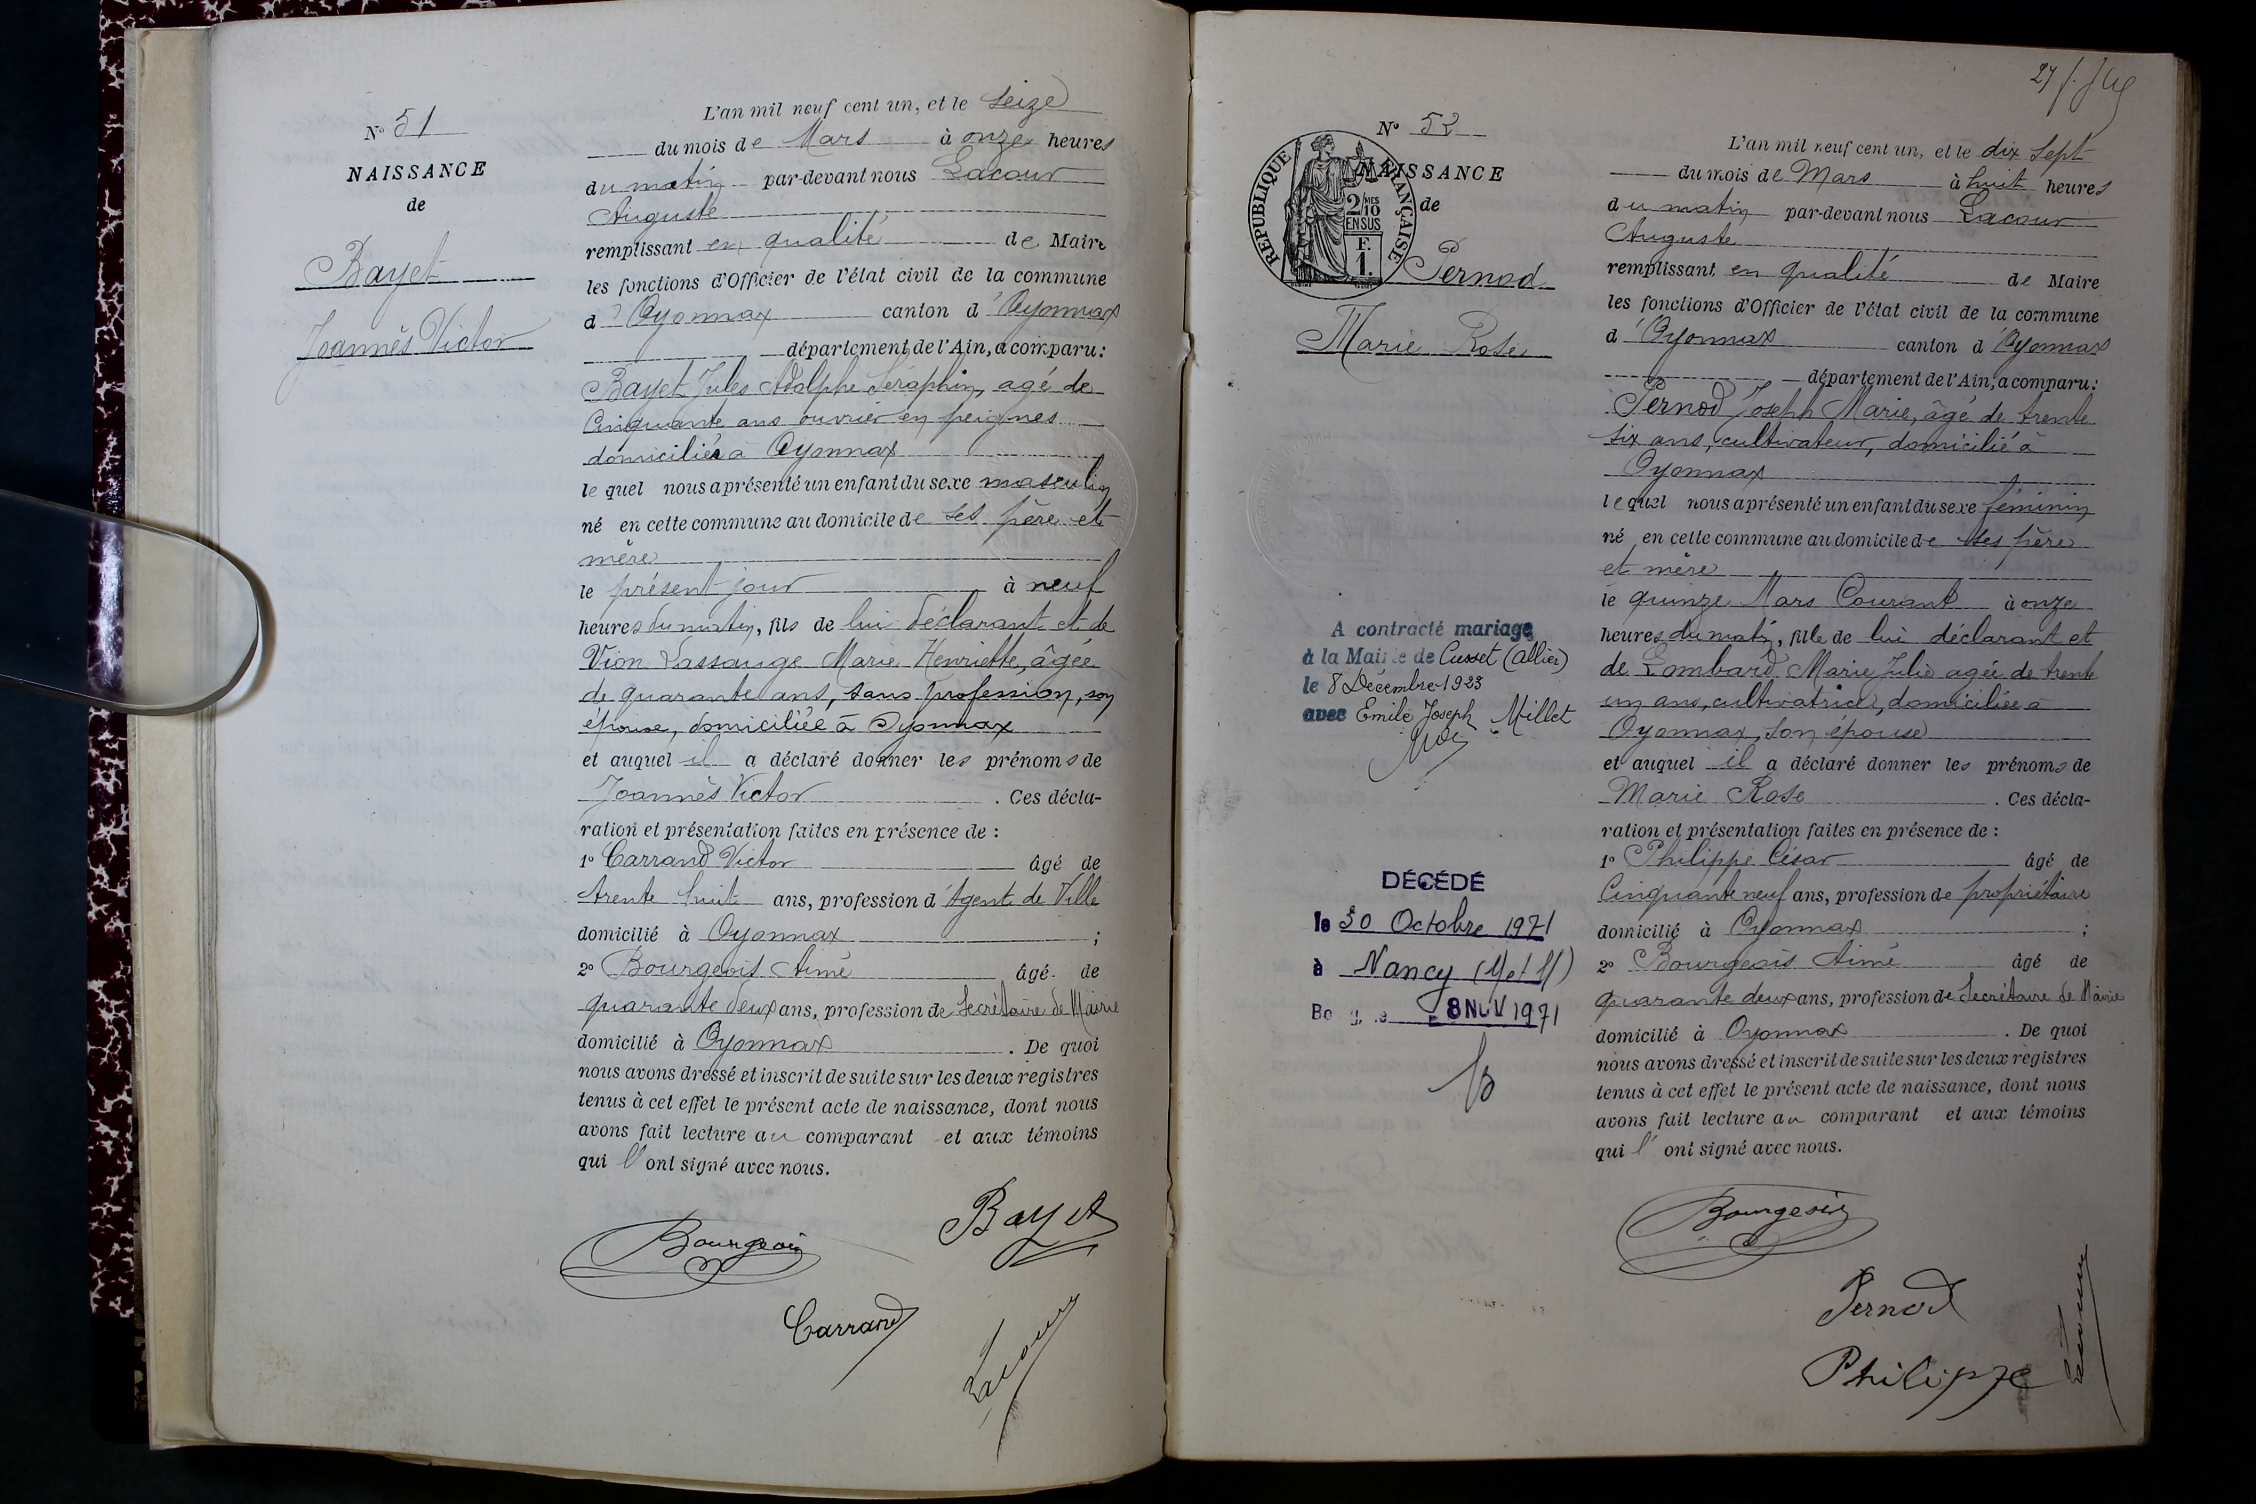 N° 51
NAISSANCE
de
Bayet
Joannès Victor
L'an mil neuf cent un, et le Seize
du mois de Mars à onze heures
du matin par-devant nous Lacour
Auguste
remplissant en qualité de Maire
les fonctions d'Officier de l'état civil de la commune
d'Oyonnax canton d'Oyonnax
département de l'Ain, a comparu:
Bayet Jules Adolphe Séraphin, agé de
Cinquante ans ouvrier en peignes
domicilié à Oyonnax
lequel nous a présenté un enfant du sexe masculin
né en cette commune au domicile de ses père et
mère
le présent jour à neuf
heures du matin, fils de lui déclarant et de
Vion Lassauge Marie Henriette, âgée
de quarante ans, sans profession, son
épouse, domiciliée à Oyonnax
et auquel il a déclaré donner les prénoms de
Joannès Victor. Ces décla-
ration et présentation faites en présence de :
1° Carrand Victor âgé de
trente huit ans, profession d'Agent de Ville
domicilié à Oyonnax ;
2° Bourgeois Aimé âgé de
quarante deux ans, profession de Secrétaire de Mairie
domicilié à Oyonnax. De quoi
nous avons dressé et inscrit de suite sur les deux registres
tenus à cet effet le présent acte de naissance, dont nous
avons fait lecture au comparant et aux témoins
qui l'ont signé avec nous.
Bourgeois
Bayet
Carrand
Lacour
27
N° 52
NAISSANCE
de
REPUBLIQUE FRANÇAISE
2/10 MES
EN SUS
F.
1.
Pernod
Marie Rose
A contracté mariage
à la Mairie de Cusset (Allier)
le 8 Décembre 1923
avec Emile Joseph Millet
DÉCÉDÉ
le 30 Octobre 1971
à Nancy (M et M)
8 NOV 1971
L'an mil neuf cent un, et le dix sept
du mois de Mars à huit heures
du matin par-devant nous Lacour
Auguste
remplissant en qualité de Maire
les fonctions d'Officier de l'état civil de la commune
d'Oyonnax canton d'Oyonnax
département de l'Ain, a comparu:
Pernod Joseph Marie, âgé de trente
six ans, cultivateur, domicilié à
Oyonnax
lequel nous a présenté un enfant du sexe féminin
né en cette commune au domicile de ses père
et mère
le quinze Mars Courant à onze
heures du matin, fille de lui déclarant et
de Lombard Marie Julie agée de trente
un ans, cultivatrice, domiciliée à
Oyonnax, son épouse
et auquel il a déclaré donner les prénoms de
Marie Rose. Ces décla-
ration et présentation faites en présence de :
1° Philippe César âgé de
Cinquante neuf ans, profession de propriétaire
domicilié à Oyonnax ;
2° Bourgeois Aimé âgé de
quarante deux ans, profession de Secrétaire de Mairie
domicilié à Oyonnax. De quoi
nous avons dressé et inscrit de suite sur les deux registres
tenus à cet effet le présent acte de naissance, dont nous
avons fait lecture au comparant et aux témoins
qui l'ont signé avec nous.
Bourgeois
Pernod
Philippe
Lacour